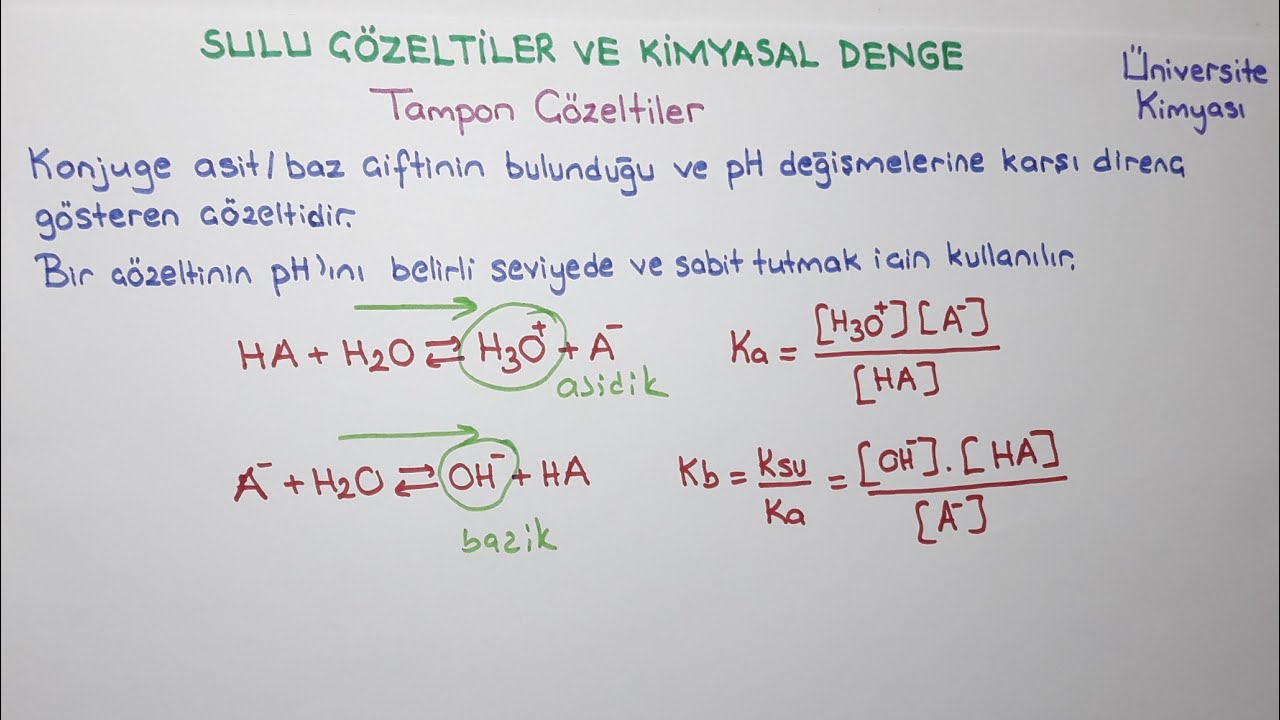 SULU ÇÖZELTİLER VE KİMYASAL DENGE
Üniversite
Kimyası
Tampon Çözeltiler
Konjuge asit/baz çiftinin bulunduğu ve pH değişmelerine karşı direnç
gösteren çözeltidir.
Bir çözeltinin pH'ını belirli seviyede ve sabit tutmak için kullanılır.
HA + H2O ⇄ H3O⁺ + A⁻
asidik
Ka = [H3O⁺][A⁻] / [HA]
A⁻ + H2O ⇄ OH⁻ + HA
bazik
Kb = Ksu / Ka = [OH⁻].[HA] / [A⁻]